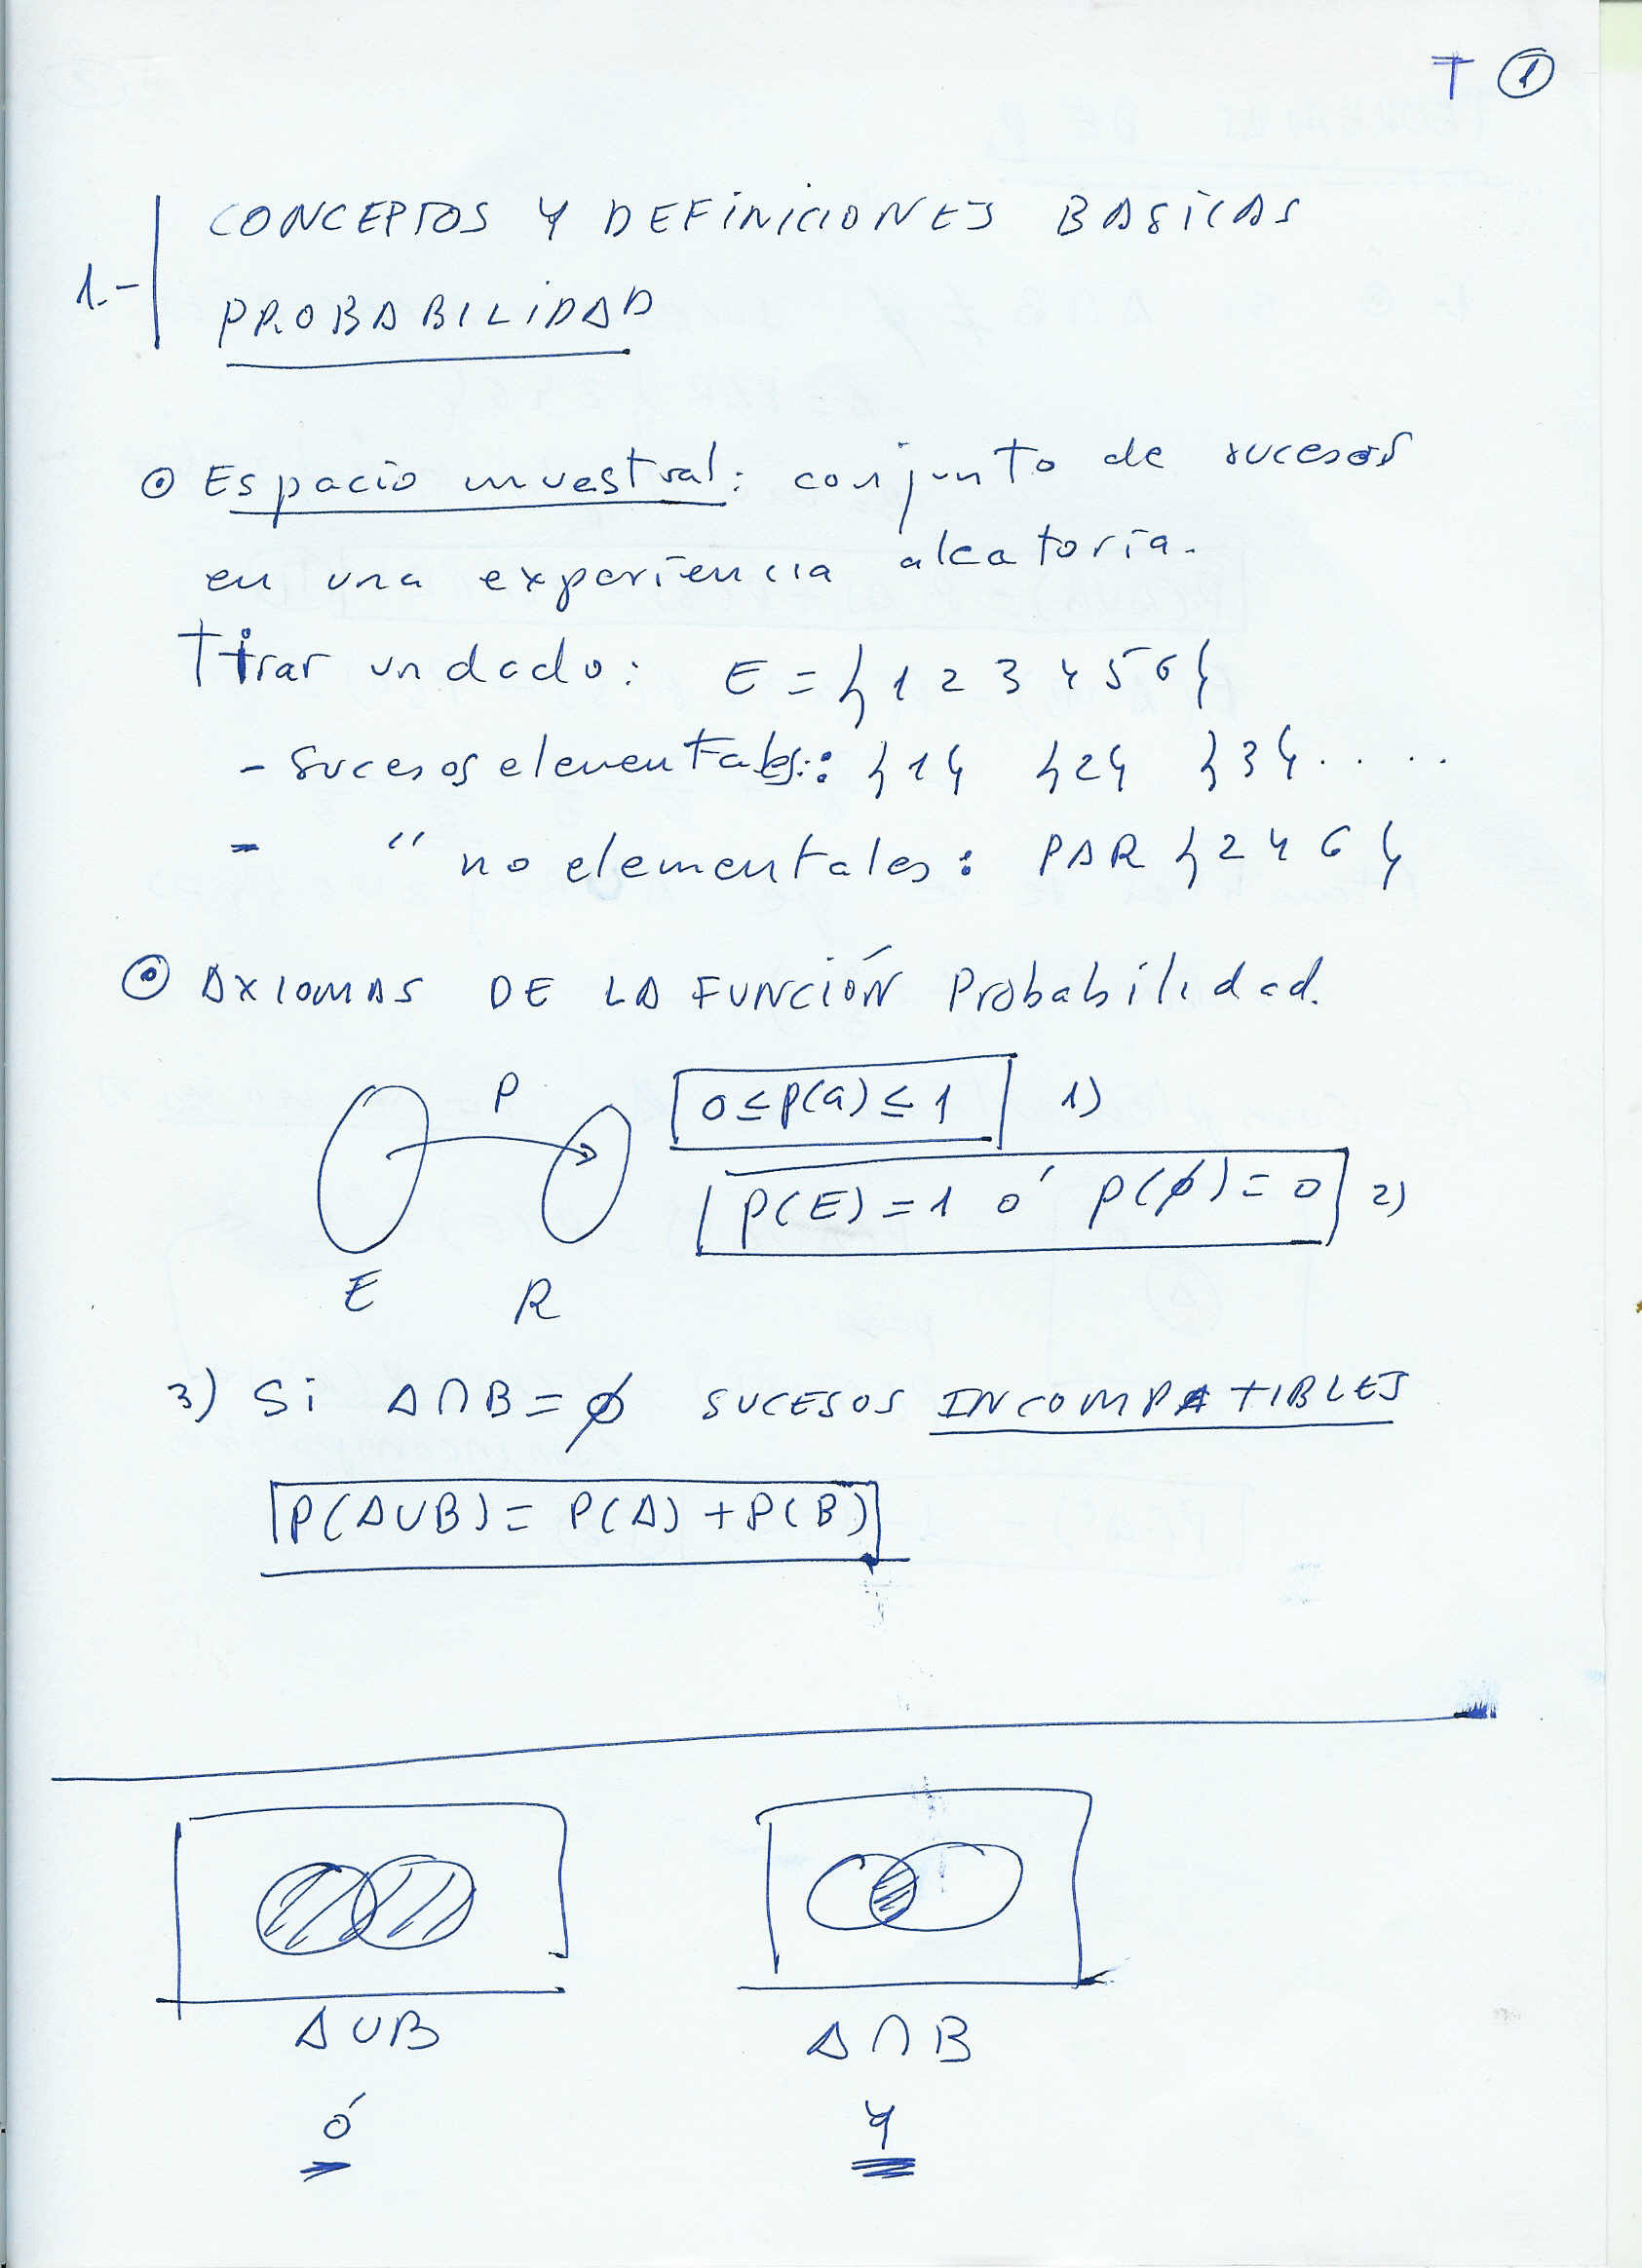 T ①
CONCEPTOS Y DEFINICIONES BASICAS
1.- PROBABILIDAD
⊙ Espacio muestral: conjunto de sucesos
en una experiencia aleatoria.
Tirar un dado: E = { 1 2 3 4 5 6 }
- Sucesos elementales: {1} {2} {3} .....
- " no elementales: PAR { 2 4 6 }
⊙ AXIOMAS DE LA FUNCIÓN Probabilidad.
P
0 ≤ p(a) ≤ 1 1)
P(E) = 1 ó p(∅) = 0 2)
E R
3) Si A∩B = ∅ SUCESOS INCOMPATIBLES
P(A∪B) = P(A) + P(B)
A∪B A∩B
ó Y